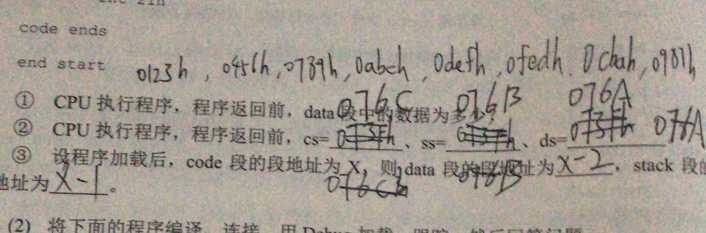 code ends
end start
0123h, 0456h, 0789h, 0abch, 0defh, 0fedh, 0cbah, 0987h
① CPU 执行程序，程序返回前，data 段中的数据为多少？
076C 076B 076A
② CPU 执行程序，程序返回前，cs=、ss=、ds= 076A
③ 设程序加载后，code 段的段地址为 X，则 data 段的段地址为 X-2，stack 段的
地址为 X-1。
(2) 将下面的程序编译、连接，用 Debug 加载、跟踪，然后回答问题